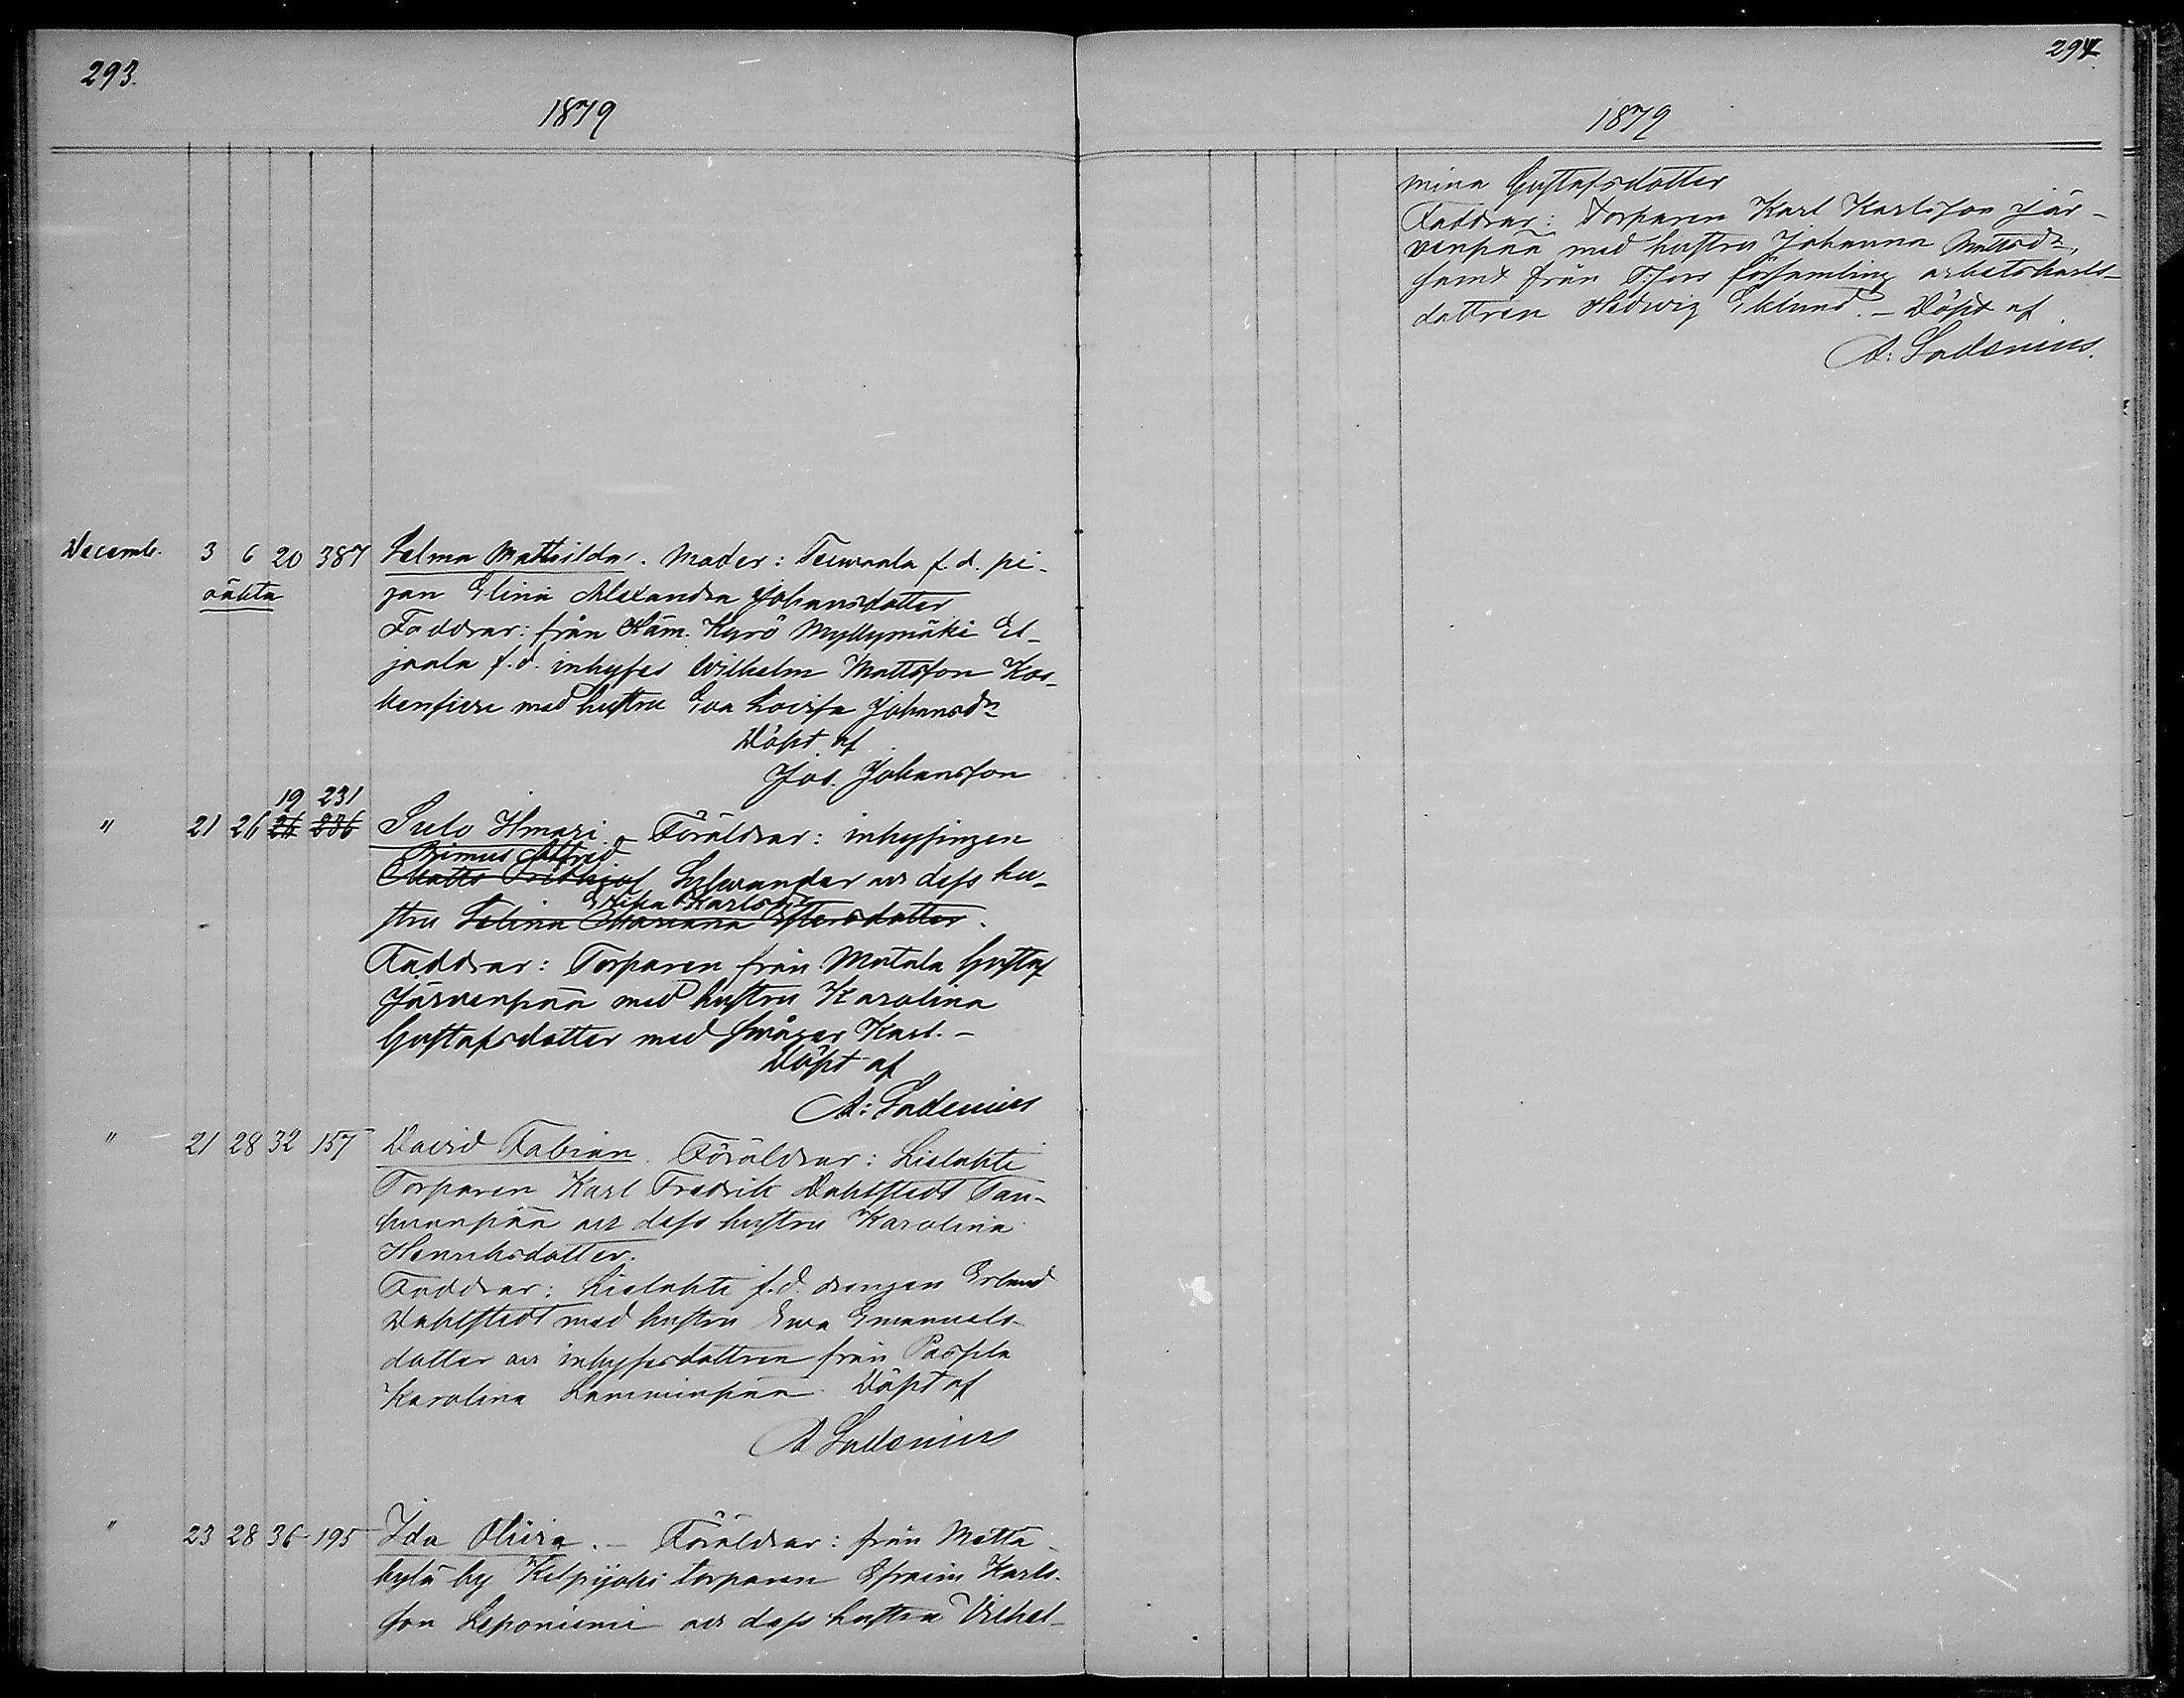 293.
1879
Decemb. 3 6 20 387 Selma Mathilda. Moder: Teivaala f.d. pi-
oäkta gan Elina Alexandra Johansdotter
Faddrar: från Häm. Kyrö Myllymäki El-
jaala f.d. inhyses Wilhelm Mattsson Kos-
kenfiere med hustru Eva Lovisa Johansdr
Döpt af
Jos. Johansson
19 231
" 21 26 26 236 Sulo Ilmari. Föräldrar: inhysingen
Primus Alfred
Matts Fridhejof Sylvander och dess hu-
Erika Karlsdr
stru Selina Mariana Estersdotter.
Faddrar: Torparen från Matala Gustaf
Järvenpää med hustru Karolina
Gustafsdotter med svåger Karl. -
Döpt af
A: Ladenius
" 21 28 32 157 David Fabian. Föräldrar: Lielahti
Torparen Karl Fredrik Dahlstedt Tan-
huanpää och dess hustru Karolina
Henriksdotter.
Faddrar: Lielahti f.d. drengen Erland
Dahlstedt med hustru Eva Emanuels-
dotter och inhysesdottren från Pospila
Karolina Lamminpää. Döpt af
A Ladenius
" 23 28 36 195 Ida Olivia. - Föräldrar: från Metta-
kylä by Kelpijoki torparen Efraim Karls-
son Leponiemi och dess hustru Vilhel-
294
1879
mina Gustafsdotter
Faddrar: Torparen Karl Karlsson Jär-
venpää med hustru Johanna Mattsdr,
samt från T:fors församling arbetskarls-
dottren Hedvig Eklund. - Döpt af
A: Ladenius.